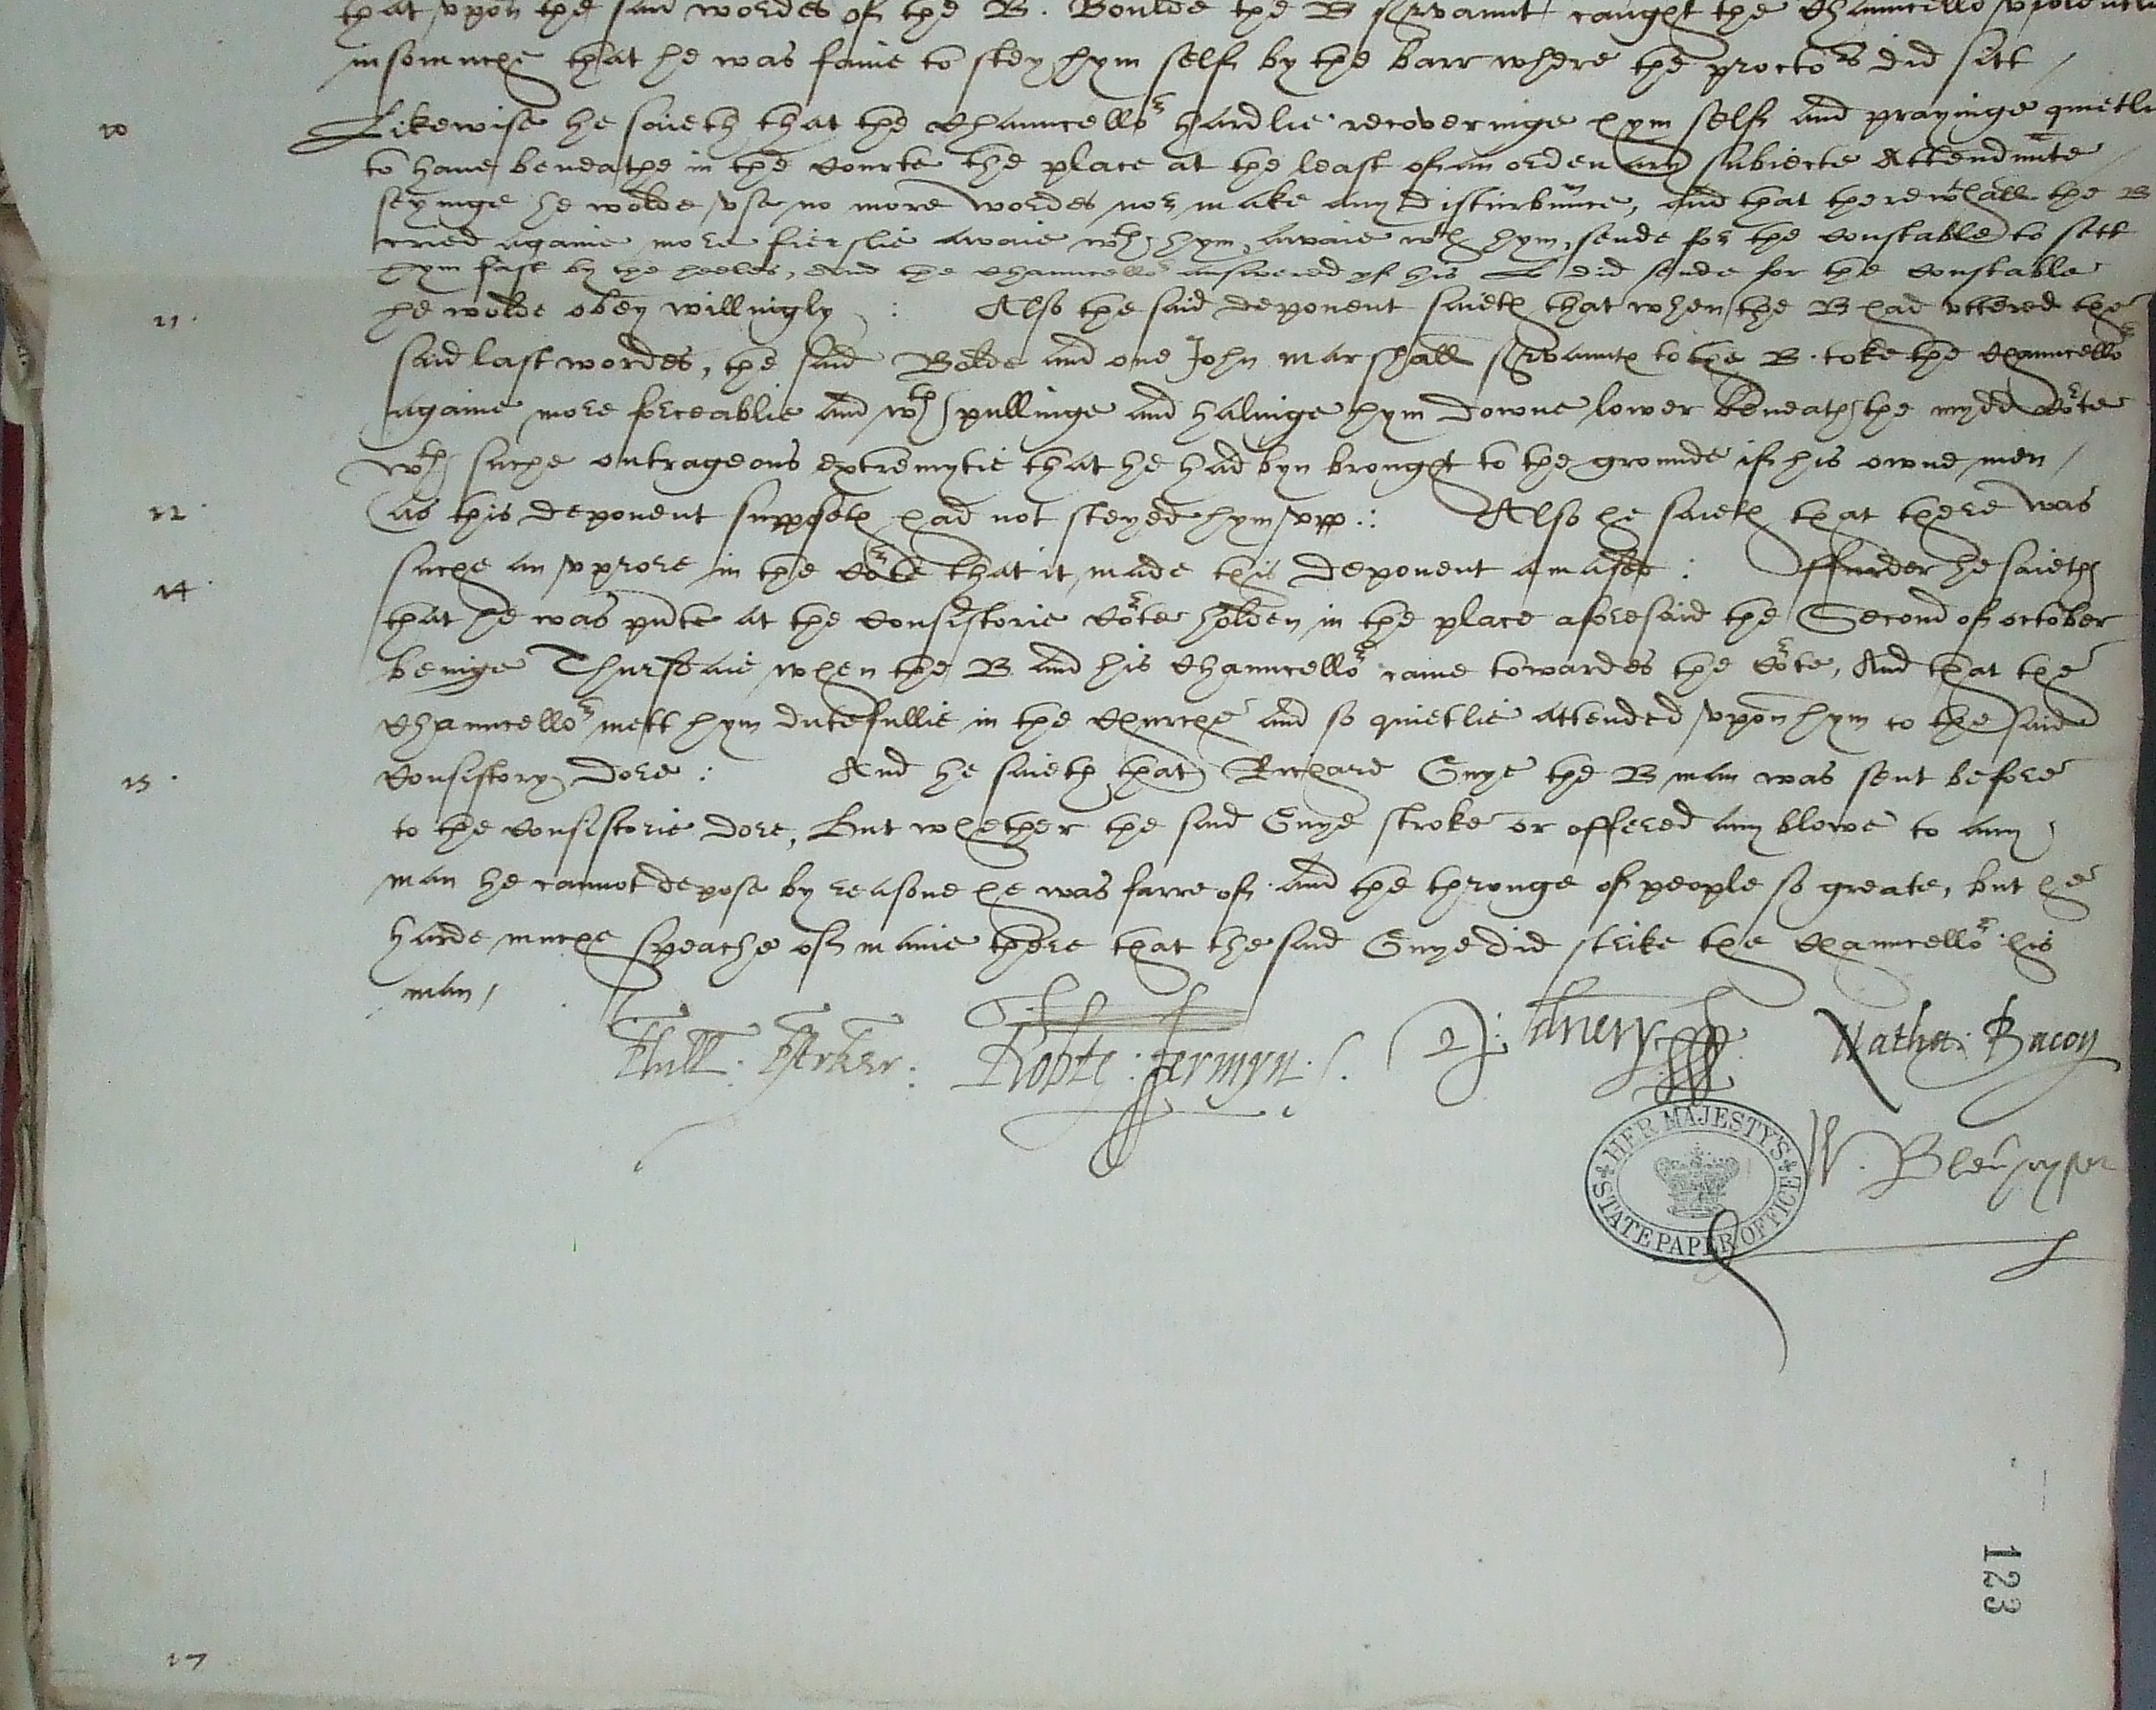 that vpon the said wordes of the B. Boulde the B servaunt caught the Chauncello^r violentl
insomuche that he was faine to stey hym self by the barr where the procto^rs did sitt /
10 Likewise he saieth that the Chauncello^r hardlie recoveringe hym self and prayinge quietli
to haue beneathe in the Courte the place at the least of an ordenary subiecte Attendnte /
seyinge he wolde vse no more wordes nor make any disturbunce, and that therew^thall the B
cried againe more fierslie awaie w^th hym, awaie w^th hym, sende for the Constable to sett
hym fast by the heeles, And the Chauncello^r answered yf his L did sende for the Constable
11. he wolde obey willingly : Also the said deponent saieth that when the B had vttered the
said last wordes, the said Bolde and one John Marshall servaunte to the B. toke the Chauncello^r
againe more forceablie and w^th pullinge and halinge hym downe lower beneath the mydd Co^rte
w^th suche outrageous extremytie that he had byn brought to the grounde if his owne men /
12. as this deponent supposeth had not steyed hym vpp .: Also he saieth that there was
suche an vprore in the Co^rte that it made this deponent amased :
14. ffurder he saieth
that he was pnte at the Consistorie Co^rte holden in the place aforesaid the Second of october
beinge Thursdaie when the B and his Chauncello^r came towardes the Co^rte, And that the
Chauncello^r mett hym dutefullie in the Churche and so quietlie attended vpon hym to the said
15. Consistory dore : And he saieth that Richard Guye the B man was sent before
to the Consistorie dore, But whether the said Guye stroke or offered any blowe to any
man he cannot depose by reasone he was farre of and the thronge of people so greate, but he
harde muche speache of manie there that the said Guye did strike the Chauncello^r his
man /
Robte : Jermyn. Natha: Bacon
W. Blen
HER MAJESTY'S STATE PAPER OFFICE
123
17